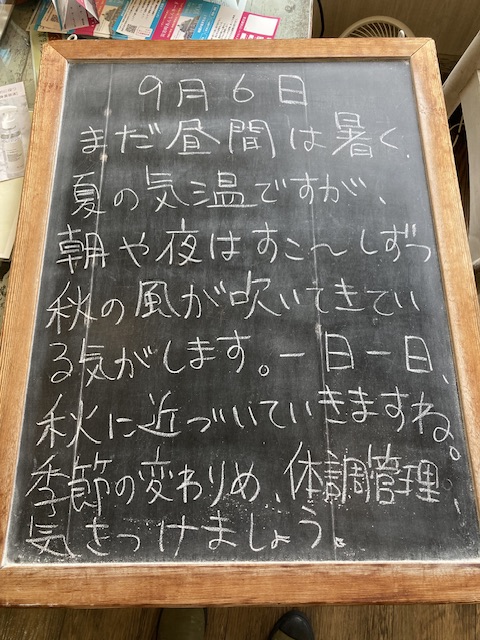 9月6日
まだ昼間は暑く、
夏の気温ですが、
朝や夜はすこ〜しずつ
秋の風が吹いてきてい
る気がします。一日一日、
秋に近づいていきますね。
季節の変わりめ、体調管理、
気をつけましょう。